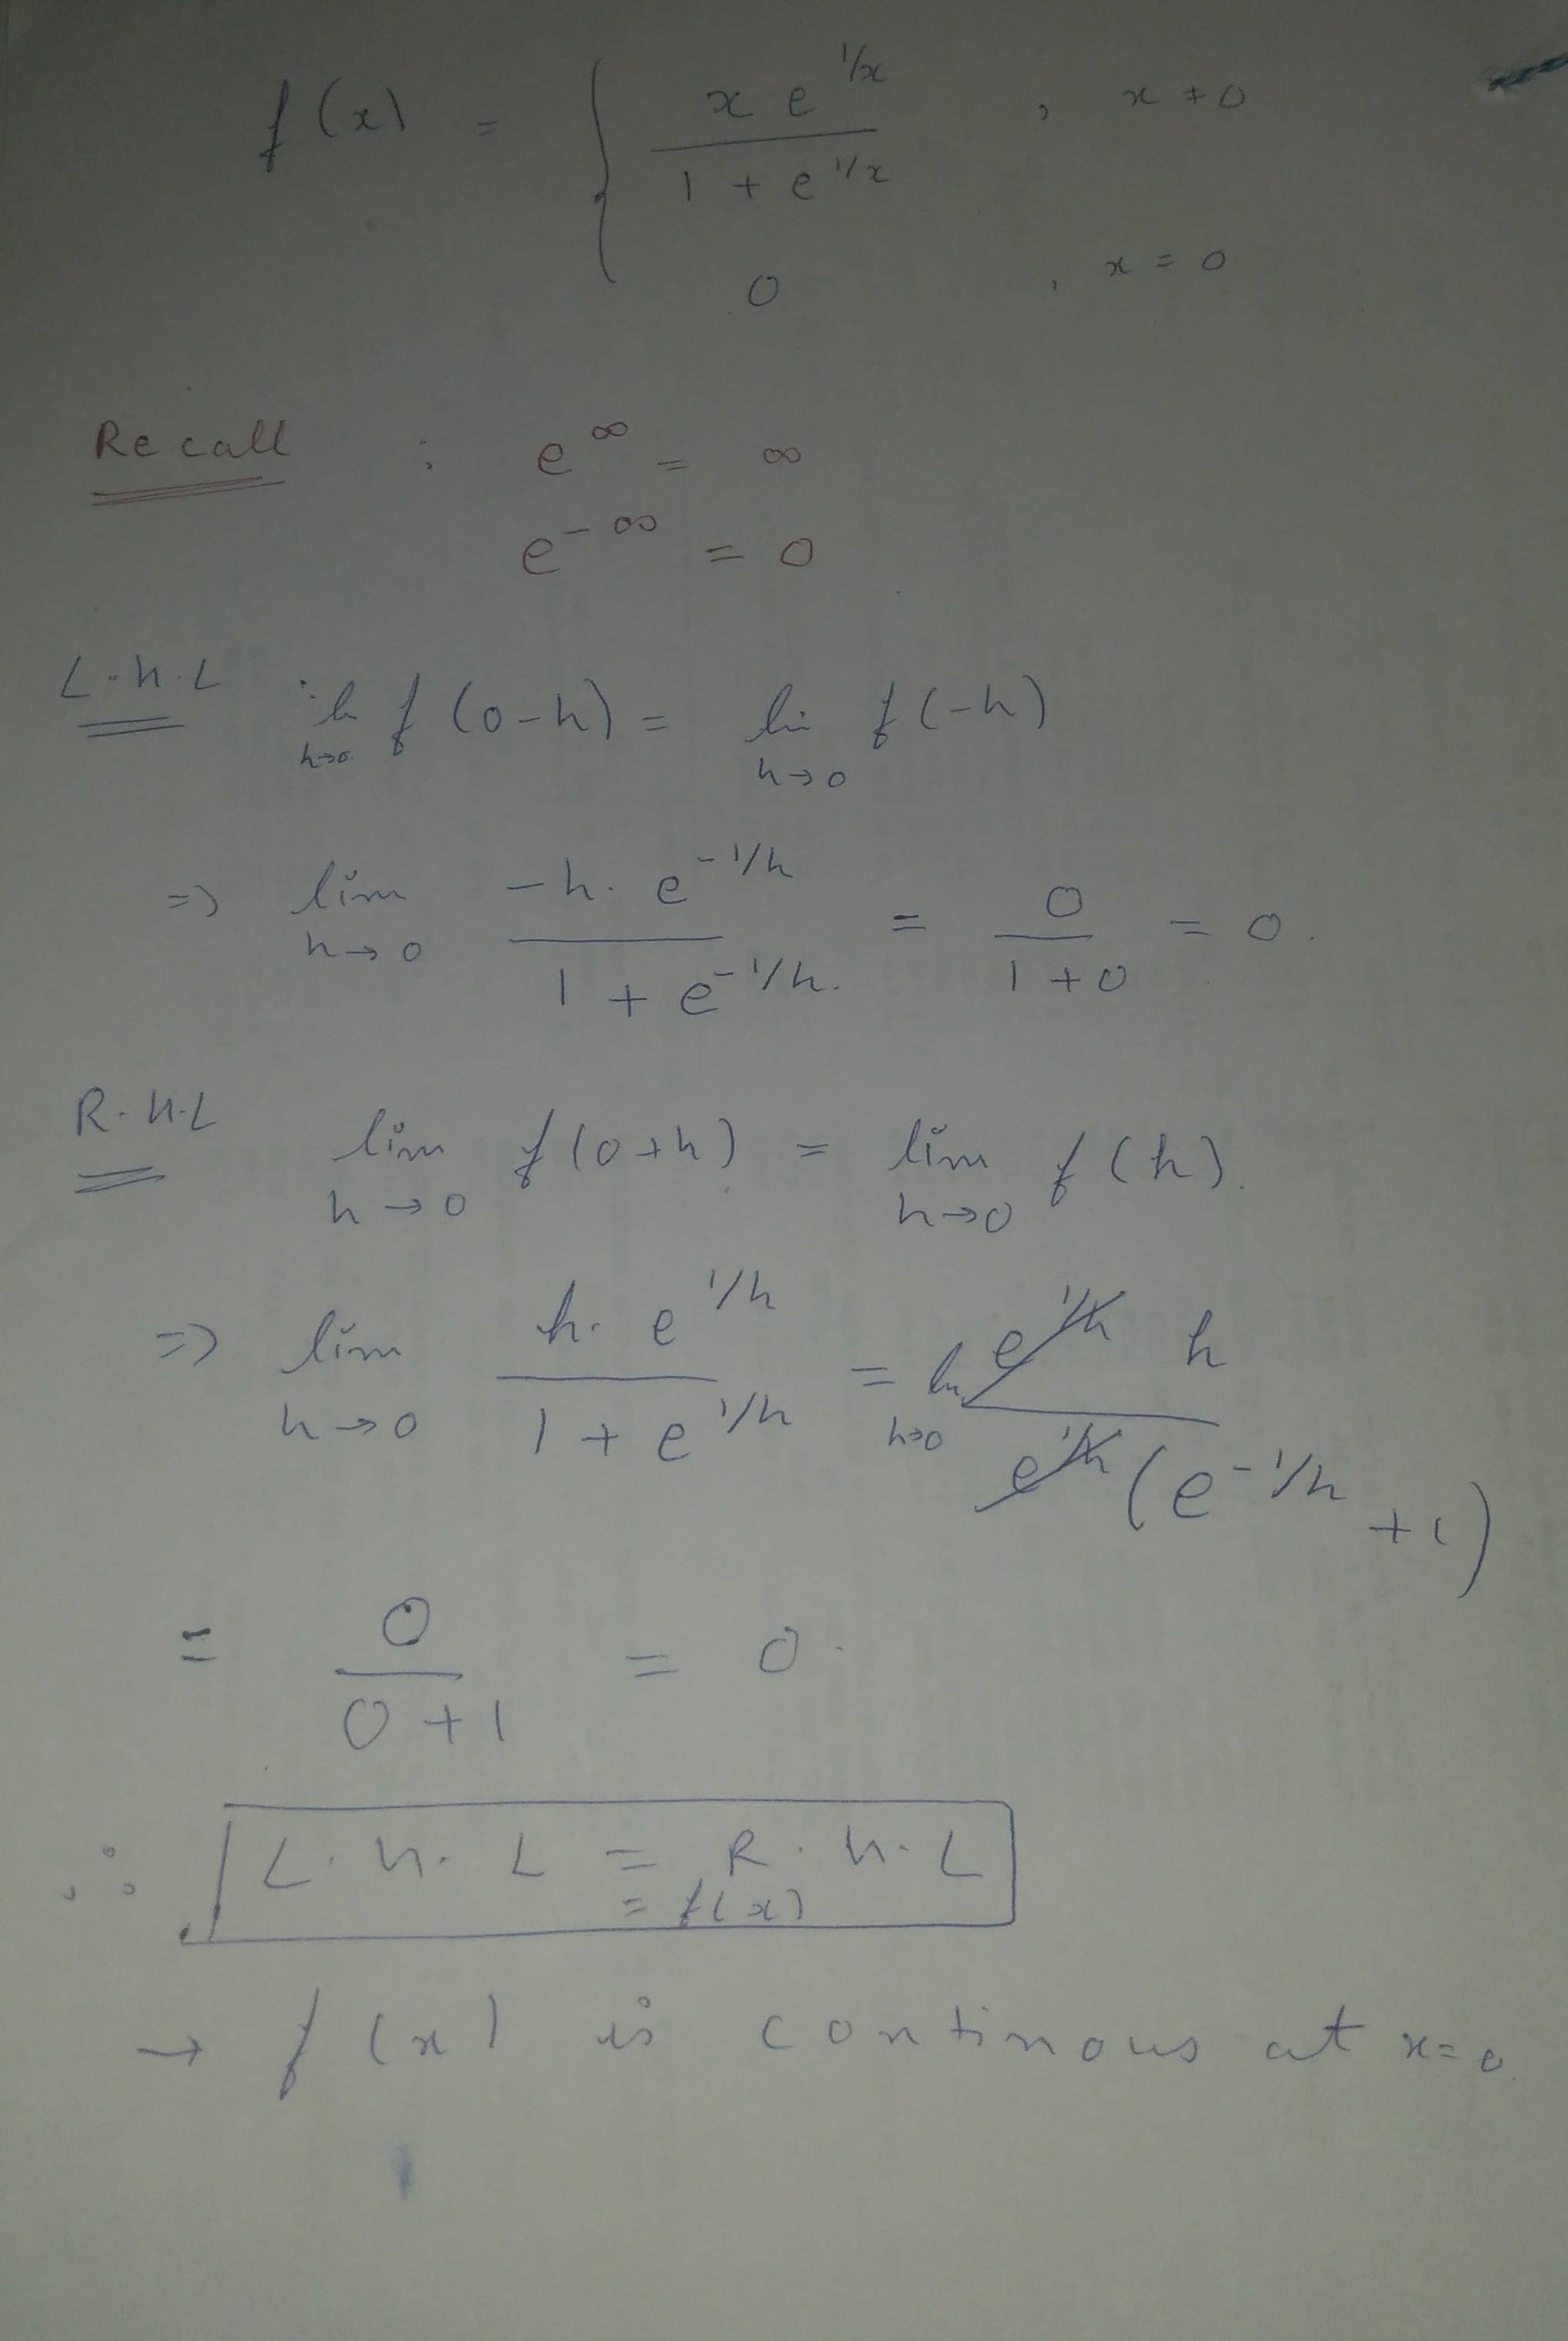 f(x) = { x e^{1/x} / 1 + e^{1/x} , x ≠ 0
0 , x = 0
Recall : e^∞ = ∞
e^{-∞} = 0
L.H.L lim h→0 f(0-h) = lim h→0 f(-h)
=> lim h→0 -h. e^{-1/h} / 1 + e^{-1/h}. = 0 / 1+0 = 0.
R.H.L lim h→0 f(0+h) = lim h→0 f(h).
=> lim h→0 h. e^{1/h} / 1 + e^{1/h} = lim h→0 e^{1/h} h / e^{1/h} (e^{-1/h} + 1)
= 0 / 0+1 = 0.
∴ L.H.L = R.H.L
= f(x)
→ f(x) is continous at x=0.